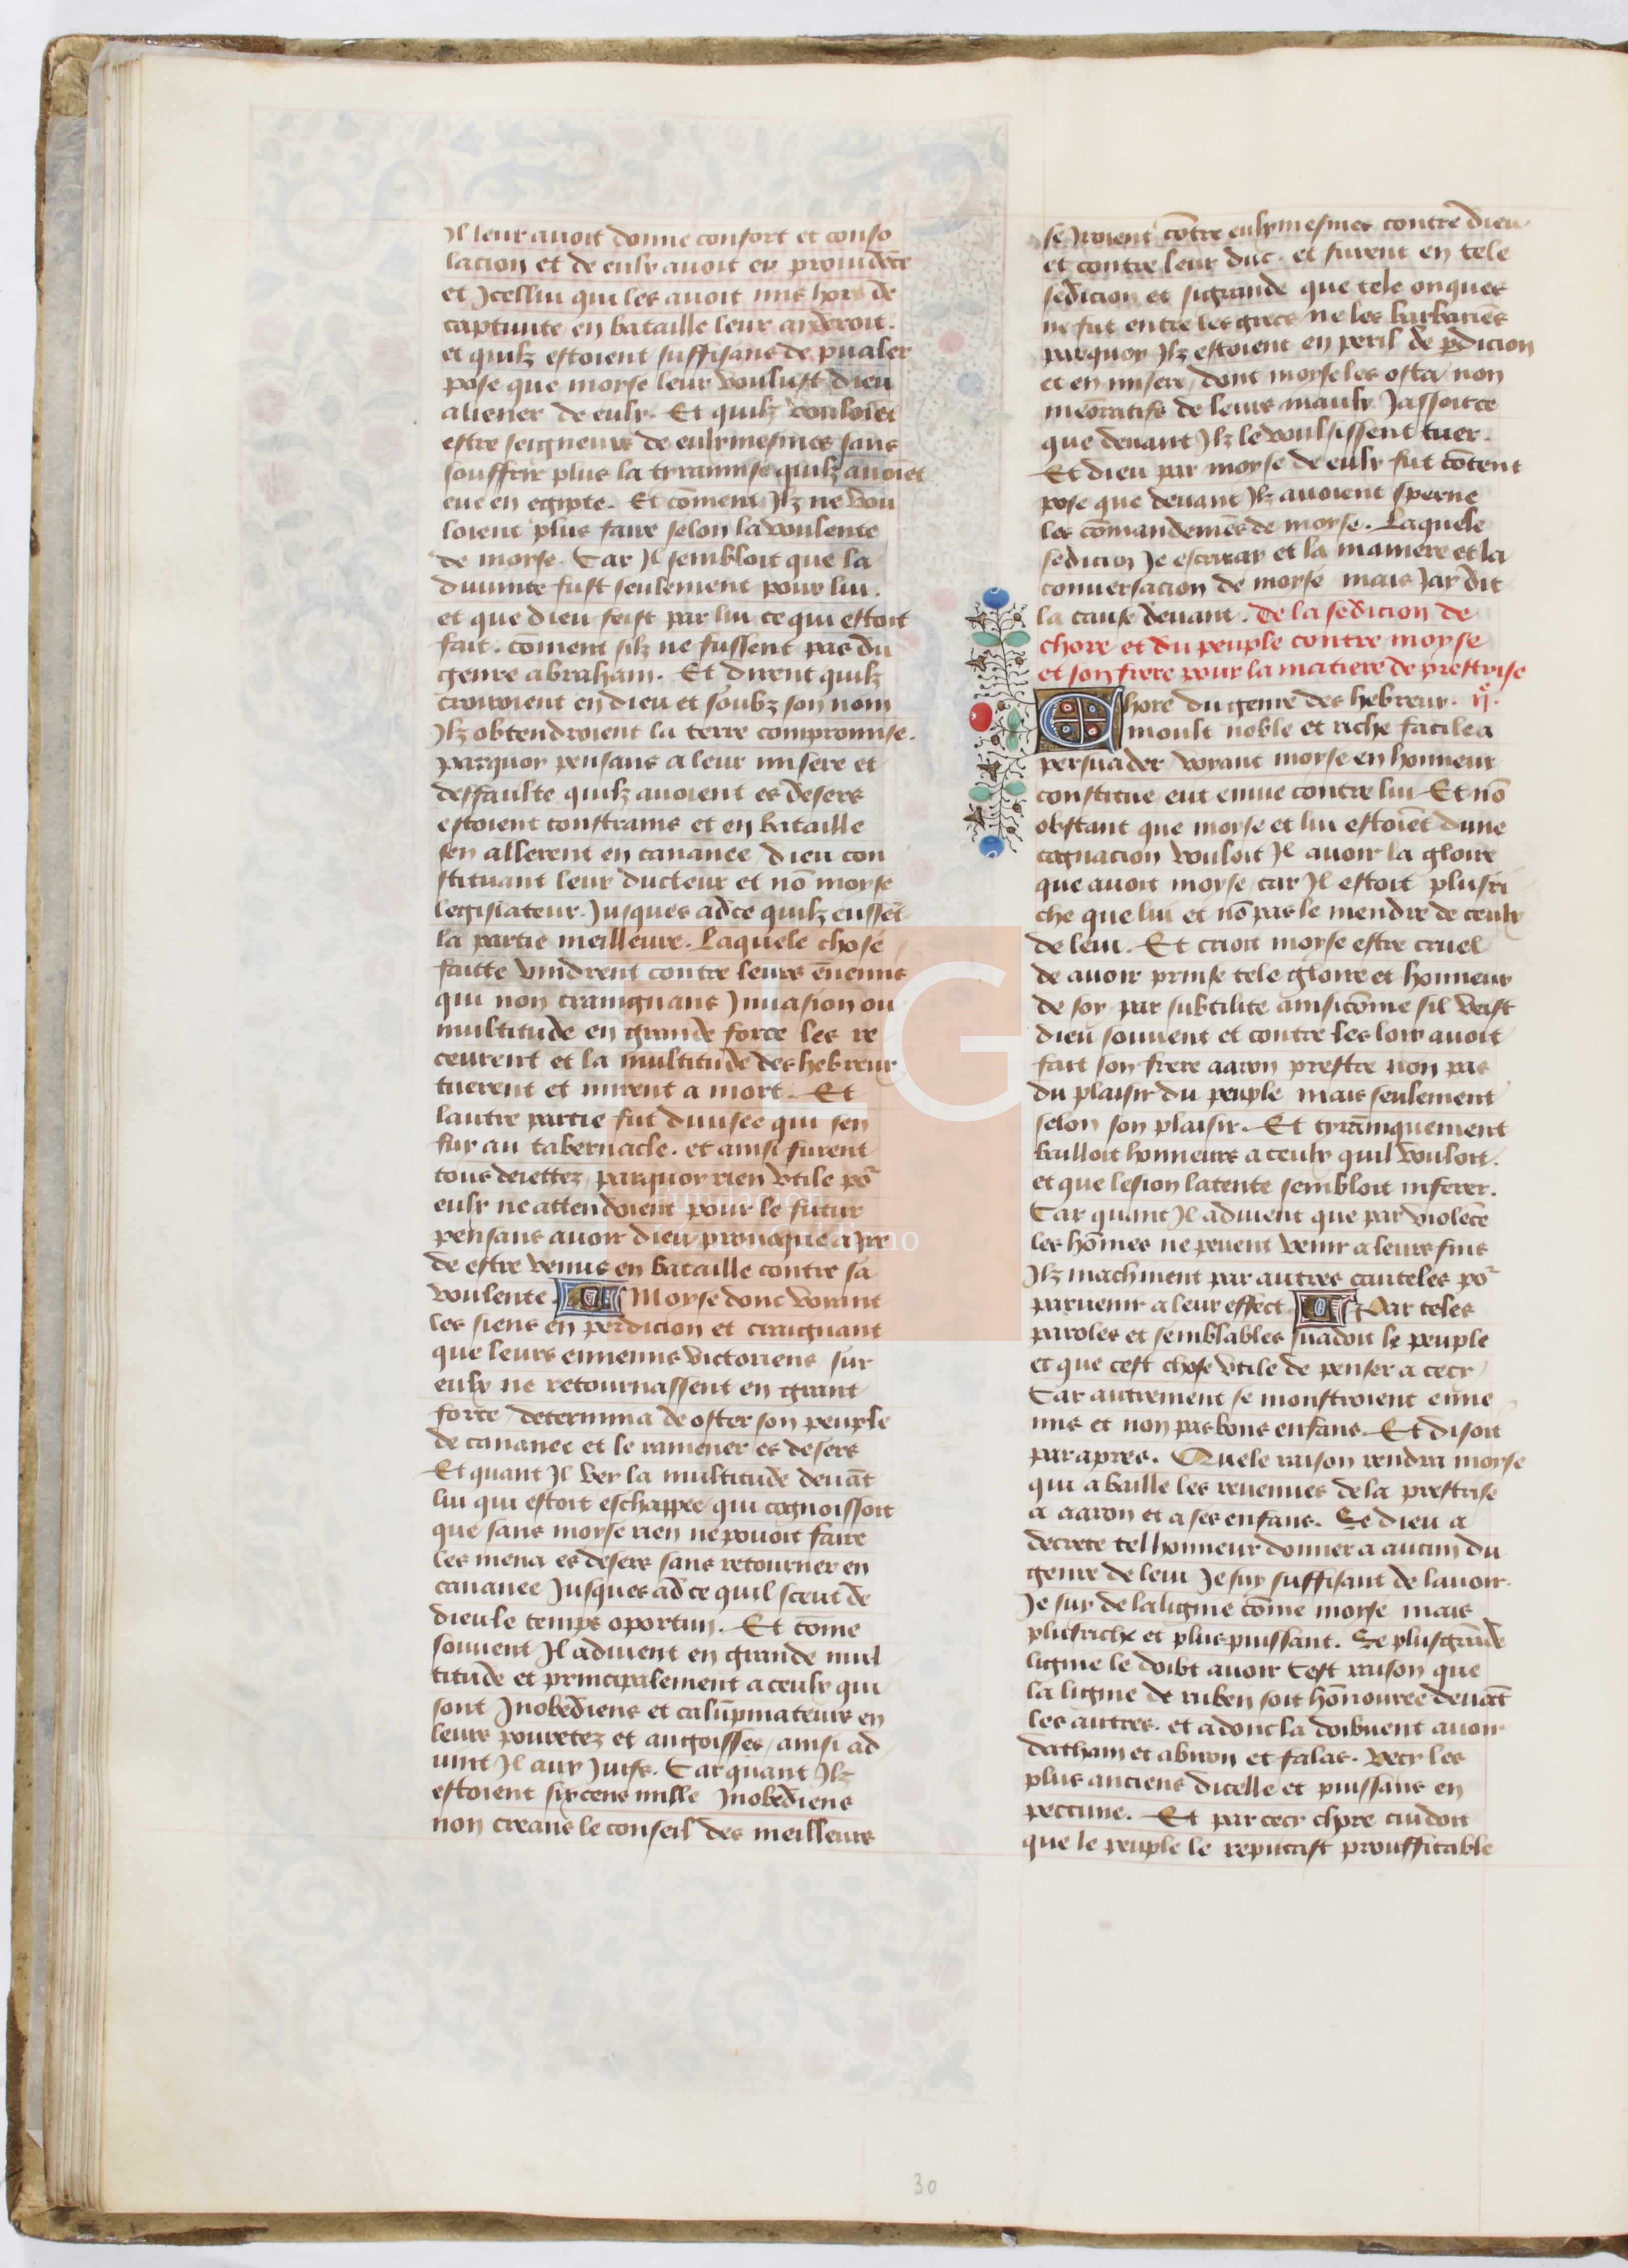 Il leur auoit donne confort et conso
lacion et de eulx auoit eu prouidēce
et Icellui qui les auoit mis hors de
captiuite en bataille leur aideroit.
et quilz estoient suffisans de pualer
pose que moyse leur voulust dieu
aliener de eulx. Et quilz vouloiēt
estre seigneurs de eulxmesmes sans
souffrir plus la tyrannise quilz auoiēt
eue en egipte. Et cōment Ilz ne vou
loient plus faire selon la voulente
de moyse. Car Il sembloit que la
diuinite fust seulement pour lui.
et que dieu feist par lui ce qui estoit
fait. cōment silz ne fussent pas du
genre abraham. Et dirent quilz
croiroient en dieu et soubz son nom
Ilz obtendroient la terre compromise.
parquoy pensans a leur misere et
deffaulte quilz auoient es desers
estoient constrains et en bataille
sen allerent en cananee / dieu con
stituant leur ducteur et nō moyse
legislateur. Jusques adce quilz eussēt
la partie meilleure. Laquele chose
faitte vindrent contre leurs ēnemis
qui non craingnans Inuasion ou
multitude en grande force les re
ceurent et la multitude des hebreux
tuerent et mirent a mort. Et
lautre partie fut diuisee qui sen
fuy au tabernacle. et ainsi furent
tous deiettez / parquoy rien vtile po
eulx ne attendoient pour le futur
pensans auoir dieu prouoque a Ire
de estre venus en bataille contre sa
voulente. Moyse donc voiant
les siens en perdicion et craignant
que leurs ennemis victoriens sur
eulx ne retournassent en grant
force / determina de oster son peuple
de cananee et le ramener es desers
Et quant Il vey la multitude deuāt
lui qui estoit eschappee / qui cognoissoit
que sans moyse rien ne pouoit faire
les mena es desers sans retourner en
cananee Jusques adce quil sceut de
dieu le temps oportun. Et cōme
souuent Il aduient en grande mul
titude et principalement a ceulx qui
sont Inobediens et calūpniateurs en
leurs pouretez et angoisses / ainsi ad
uint Il aux Juifs. Car quant Ilz
estoient sixcens mille Inobediens
non creans le conseil des meilleurs
se Iroient cōtre eulxmesmes contre dieu
et contre leur duc. et furent en tele
sedicion et sigrande que tele onques
ne fut entre les grecs ne les barbaries
parquoy Ilz estoient en peril de pdicion
et en misere / dont moyse les osta / non
meōratifs de leurs maulx Jassoitce
que deuant Ilz le voulsissent tuer.
Et dieu par moyse de eulx fut cōtent
pose que deuant Ilz auoient sperne
les cōmandemēs de moyse. Laquele
sedicion Je escriray et la maniere et la
conuersacion de moyse mais Jay dit
la cause deuant. De la sedicion de
chore et du peuple contre moyse
et son frere pour la matiere de prestrise
Chore du genre des hebreux. ij.
moult noble et riche facile a
persuader voyant moyse en honneur
constitue eut enuie contre lui. Et nō
obstant que moyse et lui estoiēt dune
cognacion vouloit Il auoir la gloire
que auoit moyse / car Il estoit plusri
che que lui et nō pas le mendre de ceulx
de leui. Et crioit moyse estre cruel
de auoir prinse tele gloire et honneur
de soy par subtilite ainsicōme sil veist
dieu souuent et contre les loix auoit
fait son frere aaron prestre non pas
du plaisir du peuple mais seulement
selon son plaisir. Et tyrāniquement
bailloit honneurs a ceulx quil vouloit.
et que lesion latente sembloit inferer.
Car quant Il aduient que par violēce
les hōmes ne peuent venir a leurs fins
Ilz machinent par autres cauteles po
paruenir a leur effect. Par teles
paroles et semblables suadoit le peuple
et que cest chose vtile de penser a cecy
Car autrement se monstroient enne
mis et non pas bons enfans. Et disoit
par apres. Quele raison rendra moyse
qui a baille les reuenues de la prestrise
a aaron et a ses enfans. Se dieu a
decrete tel honneur donner a aucun du
genre de leui Je suy suffisant de lauoir.
Je suy de la ligme cōme moyse mais
plusriche et plus puissant. Se plusgrāde
ligme le doibt auoir Cest raison que
la ligme de ruben soit hōnouree deuāt
les autres. et adonc la doibuent auoir
datham et abiron et falas. vecy les
plus anciens dicelle et puissans en
peccune. Et par cecy chore cuidoit
que le peuple le reputast prouffitable
30
Fundación
Lázaro Galdiano